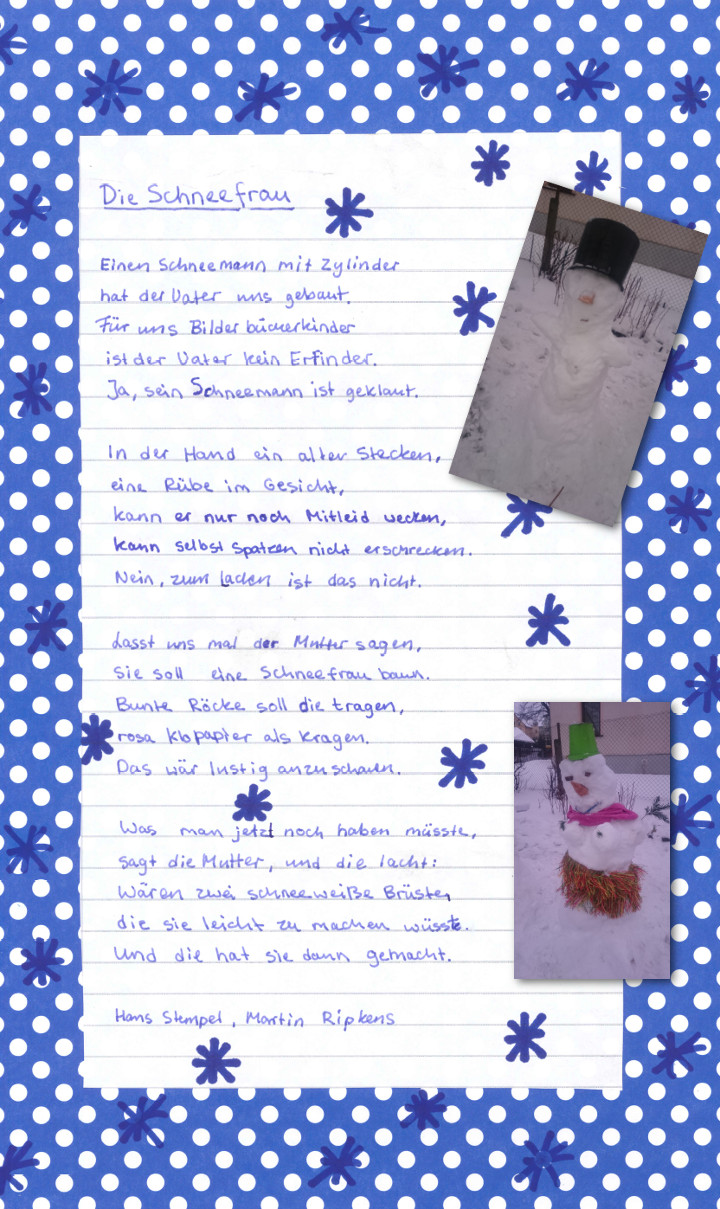 Die Schneefrau
Einen Schneemann mit Zylinder
hat der Vater uns gebaut.
Für uns Bilderbücherkinder
ist der Vater kein Erfinder.
Ja, sein Schneemann ist geklaut.
In der Hand ein alter Stecken,
eine Rübe im Gesicht,
kann er nur noch Mitleid wecken,
kann selbst Spatzen nicht erschrecken.
Nein, zum Laden ist das nicht.
Lasst uns mal der Mutter sagen,
sie soll eine Schneefrau baun.
Bunte Röcke soll die tragen,
rosa Klopapier als Kragen.
Das wär lustig anzuschauen.
Was man jetzt noch haben müsste,
sagt die Mutter, und die lacht:
Wären zwei schneeweiße Brüste,
die sie leicht zu machen wüsste.
Und die hat sie dann gemacht.
Hans Stempel, Martin Ripkens